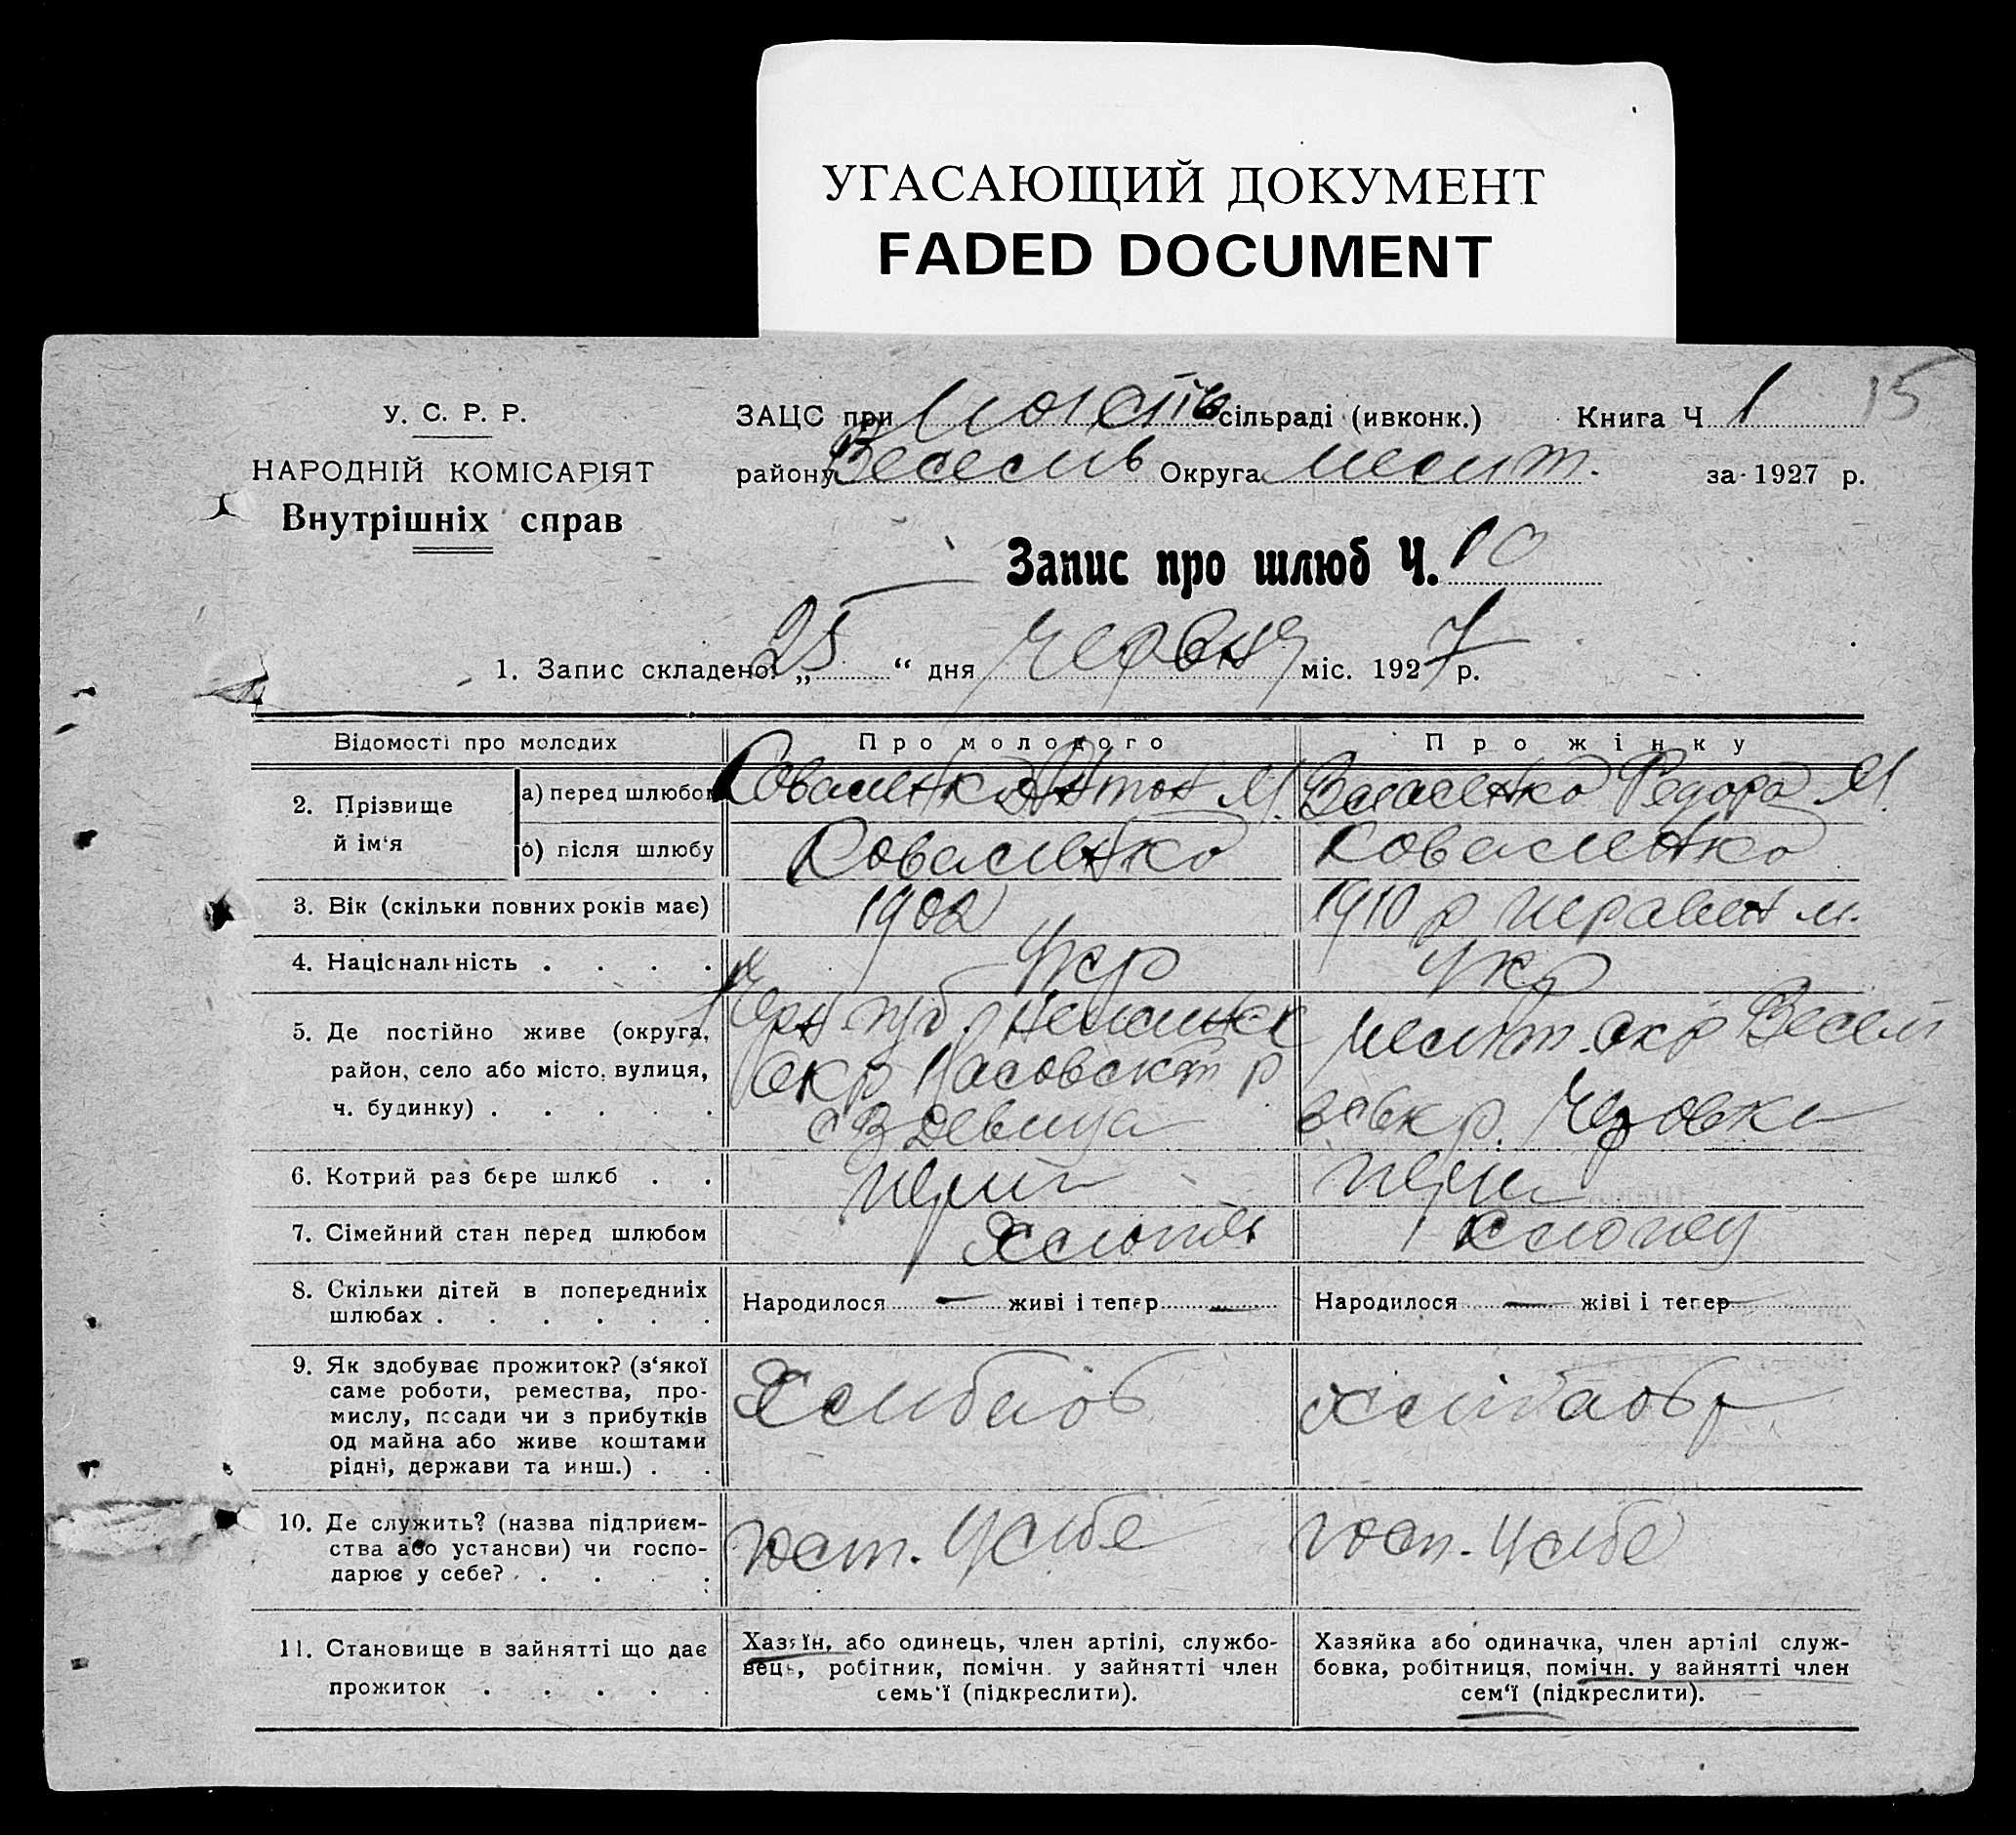 УГАСАЮЩИЙ ДОКУМЕНТ
FADED DOCUMENT
15
У. С. Р. Р.
НАРОДНІЙ КОМІСАРІЯТ
Внутрішніх справ
ЗАЦС при сільраді (ивконк.) Книга Ч 1
району Веселів Округа Мелит. за 1927 р.
Запис про шлюб Ч. 10
1. Запис складено: „25“ дня Червня міс. 1927 р.
Відомості про молодих
Про молодого
Про жінку
2. Прізвище й ім'я
а) перед шлюбом
Коваленко Антон М.
Власенко Федора М.
б) після шлюбу
Коваленко
Коваленко
3. Вік (скільки повних років має)
1902
1910 р м.
4. Національність . . . .
Укр
Укр
5. Де постійно живе (округа,
район, село або місто, вулиця,
ч. будинку) . . . . .
Черн губ. Нежинск
окр Носовскот р
с В Девица
Мелит. окр Весел
6. Котрий раз бере шлюб . .
перш
перш
7. Сімейний стан перед шлюбом
8. Скільки дітей в попередниіх
шлюбах . . . . . .
Народилося — живі і тепер —
Народилося — жіві і тепер —
9. Як здобуває прожиток? (з'якої
саме роботи, ремества, про-
мислу, посади чи з прибутків
од майна або живе коштами
рідні, держави та инш.) . .
Хлибаоб
Хлибаобр
10. Де служить? (назва підприєм-
ства або установи) чи госпо-
дарює у себе? . . . .
госп. Усибе
госп. Усибе
11. Становище в зайнятті що дає
прожиток . . . . .
Хазяїн, або одинець, член артілі, службо-
вець, робітник, помічн. у зайнятті член
семь'ї (підкреслити).
Хазяйка або одиначка, член артілі служ-
бовка, робітниця, помічн. у зайнятті член
сем'ї (підкреслити).